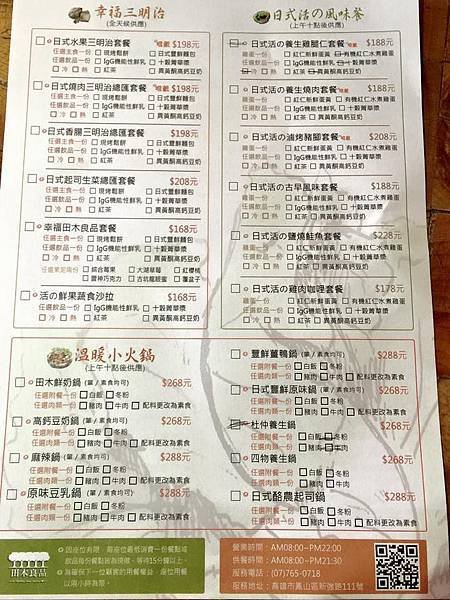 幸福三明治
(全天候供應)
日式水果三明治套餐 $198元
任選主食一份 現烤鬆餅 日式豐鮮麵包
任選飲品一份 IgG機能性鮮乳 十穀菁華漿
冷 熱 紅茶 異黃酮高鈣豆奶
日式燒肉三明治總匯套餐 $198元
任選主食一份 現烤鬆餅 日式豐鮮麵包
任選飲品一份 IgG機能性鮮乳 十穀菁華漿
冷 熱 紅茶 異黃酮高鈣豆奶
日式香腸三明治總匯套餐 $198元
任選主食一份 現烤鬆餅 日式豐鮮麵包
任選飲品一份 IgG機能性鮮乳 十穀菁華漿
冷 熱 紅茶 異黃酮高鈣豆奶
日式起司生菜總匯套餐 $208元
任選主食一份 現烤鬆餅 日式豐鮮麵包
任選飲品一份 IgG機能性鮮乳 十穀菁華漿
冷 熱 紅茶 異黃酮高鈣豆奶
幸福田木良品套餐 $168元
任選主食一份 現烤鬆餅 日式豐鮮麵包
任選飲品一份 IgG機能性鮮乳 十穀菁華漿
冷 熱 紅茶 異黃酮高鈣豆奶
任選果泥兩份 綜合莓果 大湖草莓 紅櫻桃
雷神巧克力 古坑龍眼蜜 覆盆子
活の鮮果蔬食沙拉 $168元
任選飲品一份 IgG機能性鮮乳 十穀菁華漿
冷 熱 紅茶 異黃酮高鈣豆奶
日式活の風味餐
(上午十點後供應)
日式活の養生雞腿仁套餐 $188元
雞蛋一份 紅仁新鮮蛋黃 有機紅仁水煮雞蛋
任選飲品一份 IgG機能性鮮乳 十穀菁華漿
冷 熱 紅茶 異黃酮高鈣豆奶
日式活の養生燒肉套餐 $188元
雞蛋一份 紅仁新鮮蛋黃 有機紅仁水煮雞蛋
任選飲品一份 IgG機能性鮮乳 十穀菁華漿
冷 熱 紅茶 異黃酮高鈣豆奶
日式活の滷烤豬腳套餐 $208元
雞蛋一份 紅仁新鮮蛋黃 有機紅仁水煮雞蛋
任選飲品一份 IgG機能性鮮乳 十穀菁華漿
冷 熱 紅茶 異黃酮高鈣豆奶
日式活の古早風味套餐 $188元
雞蛋一份 紅仁新鮮蛋黃 有機紅仁水煮雞蛋
任選飲品一份 IgG機能性鮮乳 十穀菁華漿
冷 熱 紅茶 異黃酮高鈣豆奶
日式活の鹽燒鮭魚套餐 $228元
雞蛋一份 紅仁新鮮蛋黃 有機紅仁水煮雞蛋
任選飲品一份 IgG機能性鮮乳 十穀菁華漿
冷 熱 紅茶 異黃酮高鈣豆奶
日式活の雞肉咖哩套餐 $178元
雞蛋一份 紅仁新鮮蛋黃 有機紅仁水煮雞蛋
任選飲品一份 IgG機能性鮮乳 十穀菁華漿
冷 熱 紅茶 異黃酮高鈣豆奶
溫暖小火鍋
(上午十點後供應)
田木鮮奶鍋 (葷/素食均可) $268元
任選附餐一份 白飯 冬粉
任選肉類一份 豬肉 牛肉 配料更改為素食
高鈣豆奶鍋 (葷/素食均可) $268元
任選附餐一份 白飯 冬粉
任選肉類一份 豬肉 牛肉 配料更改為素食
麻辣鍋 (葷/素食均可) $288元
任選附餐一份 白飯 冬粉
任選肉類一份 豬肉 牛肉 配料更改為素食
原味豆乳鍋 (葷/素食均可) $288元
任選附餐一份 白飯 冬粉
任選肉類一份 豬肉 牛肉 配料更改為素食
豐鮮薑鴨鍋 $288元
任選附餐一份 白飯 冬粉
日式豐鮮原味鍋 (葷/素食均可) $268元
任選附餐一份 白飯 冬粉
任選肉類一份 豬肉 牛肉 配料更改為素食
杜仲養生鍋 $268元
任選附餐一份 白飯 冬粉
任選肉類一份 豬肉 牛肉
四物養生鍋 $268元
任選附餐一份 白飯 冬粉
任選肉類一份 豬肉 牛肉
日式酪農起司鍋 $288元
任選附餐一份 白飯 冬粉
任選肉類一份 豬肉 牛肉
田木良品
因座位有限，每座位最低消費一份餐點或
飲品每份餐點皆為現做，等待15分鐘以上。
為確保下一位顧客的用餐權益，座位用餐
以兩小時為限。
營業時間：AM08:00~PM22:00
供餐時間：AM08:00~PM21:30
服務電話：(07)765-0718
服務地址：高雄市鳳山區新強路111號